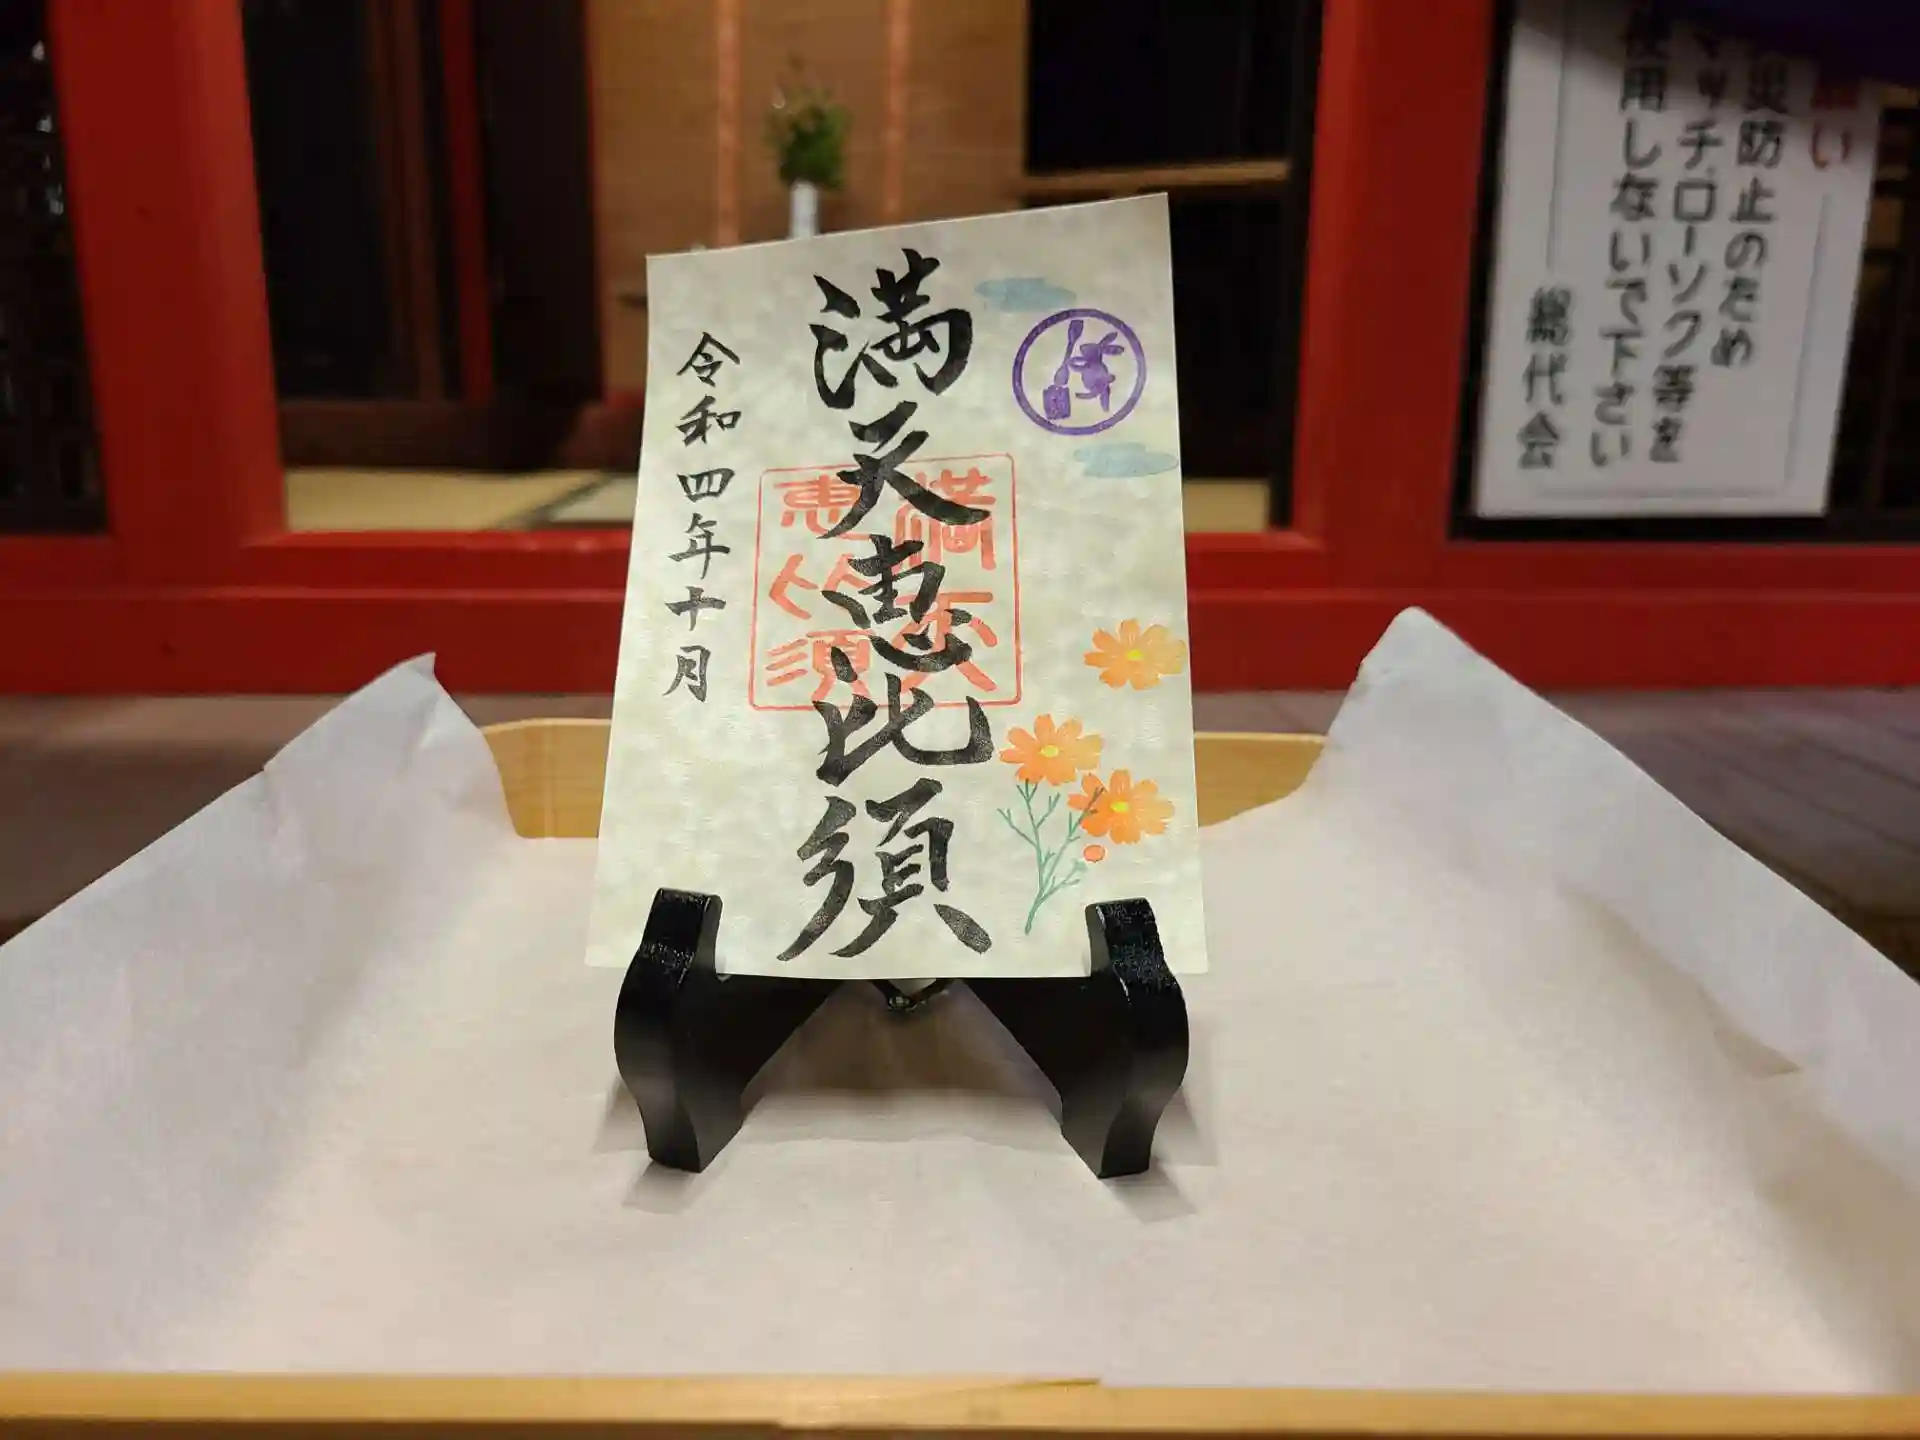 満天恵比須
満天
恵比須
令和四年十月
願い
災防止のため
マッチ.ローソク等を
使用しないで下さい
総代会